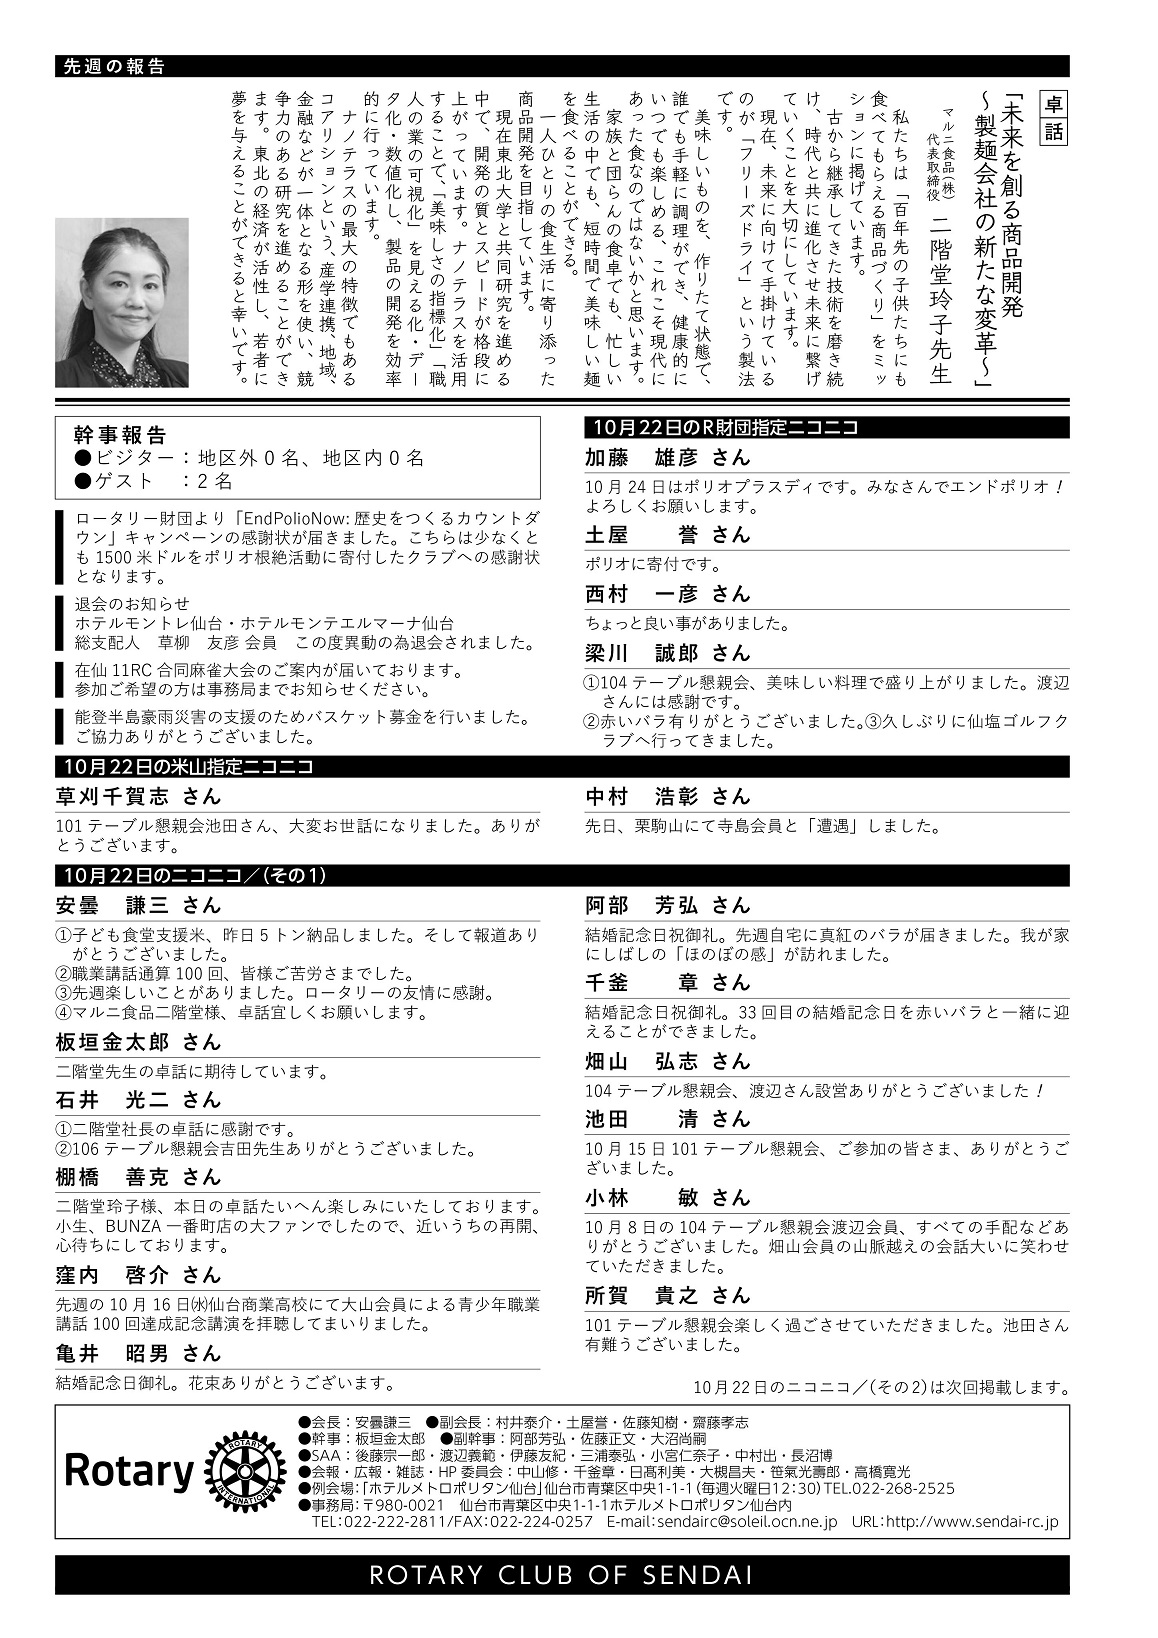 先週の報告
卓話
「未来を創る商品開発
～製麺会社の新たな変革～」
マルニ食品(株)
代表取締役
二階堂玲子先生
私たちは「百年先の子供たちにも
食べてもらえる商品づくり」をミッ
ションに掲げています。
古から継承してきた技術を磨き続
け、時代と共に進化させ未来に繋げ
ていくことを大切にしています。
現在、未来に向けて手掛けている
のが「フリーズドライ」という製法
です。
美味しいものを、作りたて状態で、
誰でも手軽に調理ができ、健康的に
いつでも楽しめる、これこそ現代に
あった食なのではないかと思います。
家族と団らんの食卓でも、忙しい
生活の中でも、短時間で美味しい麺
を食べることができる。
一人ひとりの食生活に寄り添った
商品開発を目指しています。
現在東北大学と共同研究を進める
中で、開発の質とスピードが格段に
上がっています。ナノテラスを活用
することで、「美味しさの指標化」「職
人の業の可視化」を見える化・デー
タ化・数値化し、製品の開発を効率
的に行っています。
ナノテラスの最大の特徴でもある
コアリションという、産学連携、地域、
金融などが一体となる形を使い、競
争力のある研究を進めることができ
ます。東北の経済が活性し、若者に
夢を与えることができると幸いです。
幹事報告
●ビジター：地区外0名、地区内0名
●ゲスト　：2名
ロータリー財団より「EndPolioNow:歴史をつくるカウントダ
ウン」キャンペーンの感謝状が届きました。こちらは少なくと
も1500米ドルをポリオ根絶活動に寄付したクラブへの感謝状
となります。
退会のお知らせ
ホテルモントレ仙台・ホテルモンテエルマーナ仙台
総支配人　草柳　友彦 会員　この度異動の為退会されました。
在仙11RC合同麻雀大会のご案内が届いております。
参加ご希望の方は事務局までお知らせください。
能登半島豪雨災害の支援のためバスケット募金を行いました。
ご協力ありがとうございました。
10月22日のR財団指定ニコニコ
加藤　雄彦 さん
10月24日はポリオプラスディです。みなさんでエンドポリオ！
よろしくお願いします。
土屋　　誉 さん
ポリオに寄付です。
西村　一彦 さん
ちょっと良い事がありました。
梁川　誠郎 さん
①104テーブル懇親会、美味しい料理で盛り上がりました。渡辺
さんには感謝です。
②赤いバラ有りがとうございました。③久しぶりに仙塩ゴルフク
ラブへ行ってきました。
10月22日の米山指定ニコニコ
草刈千賀志 さん
101テーブル懇親会池田さん、大変お世話になりました。ありが
とうございます。
中村　浩彰 さん
先日、栗駒山にて寺島会員と「遭遇」しました。
10月22日のニコニコ／(その1)
安曇　謙三 さん
①子ども食堂支援米、昨日5トン納品しました。そして報道あり
がとうございました。
②職業講話通算100回、皆様ご苦労さまでした。
③先週楽しいことがありました。ロータリーの友情に感謝。
④マルニ食品二階堂様、卓話宜しくお願いします。
板垣金太郎 さん
二階堂先生の卓話に期待しています。
石井　光二 さん
①二階堂社長の卓話に感謝です。
②106テーブル懇親会吉田先生ありがとうございました。
棚橋　善克 さん
二階堂玲子様、本日の卓話たいへん楽しみにいたしております。
小生、BUNZA一番町店の大ファンでしたので、近いうちの再開、
心待ちにしております。
窪内　啓介 さん
先週の10月16日㈬仙台商業高校にて大山会員による青少年職業
講話100回達成記念講演を拝聴してまいりました。
亀井　昭男 さん
結婚記念日御礼。花束ありがとうございます。
阿部　芳弘 さん
結婚記念日祝御礼。先週自宅に真紅のバラが届きました。我が家
にしばしの「ほのぼの感」が訪れました。
千釜　　章 さん
結婚記念日祝御礼。33回目の結婚記念日を赤いバラと一緒に迎
えることができました。
畑山　弘志 さん
104テーブル懇親会、渡辺さん設営ありがとうございました！
池田　　清 さん
10月15日101テーブル懇親会、ご参加の皆さま、ありがとうご
ざいました。
小林　　敏 さん
10月8日の104テーブル懇親会渡辺会員、すべての手配などあ
りがとうございました。畑山会員の山脈越えの会話大いに笑わせ
ていただきました。
所賀　貴之 さん
101テーブル懇親会楽しく過ごさせていただきました。池田さん
有難うございました。
10月22日のニコニコ／(その2)は次回掲載します。
Rotary
ROTARY
INTERNATIONAL
●会長：安曇謙三　●副会長：村井泰介・土屋誉・佐藤知樹・齋藤孝志
●幹事：板垣金太郎　●副幹事：阿部芳弘・佐藤正文・大沼尚嗣
●SAA：後藤宗一郎・渡辺義範・伊藤友紀・三浦泰弘・小宮仁奈子・中村出・長沼博
●会報・広報・雑誌・HP委員会：中山修・千釜章・日髙利美・大槻昌夫・笹氣光壽郎・高橋寛光
●例会場：「ホテルメトロポリタン仙台」仙台市青葉区中央1-1-1(毎週火曜日12：30)TEL.022-268-2525
●事務局：〒980-0021　仙台市青葉区中央1-1-1ホテルメトロポリタン仙台内
TEL：022-222-2811/FAX：022-224-0257　E-mail：sendairc@soleil.ocn.ne.jp　URL：http://www.sendai-rc.jp
ROTARY CLUB OF SENDAI